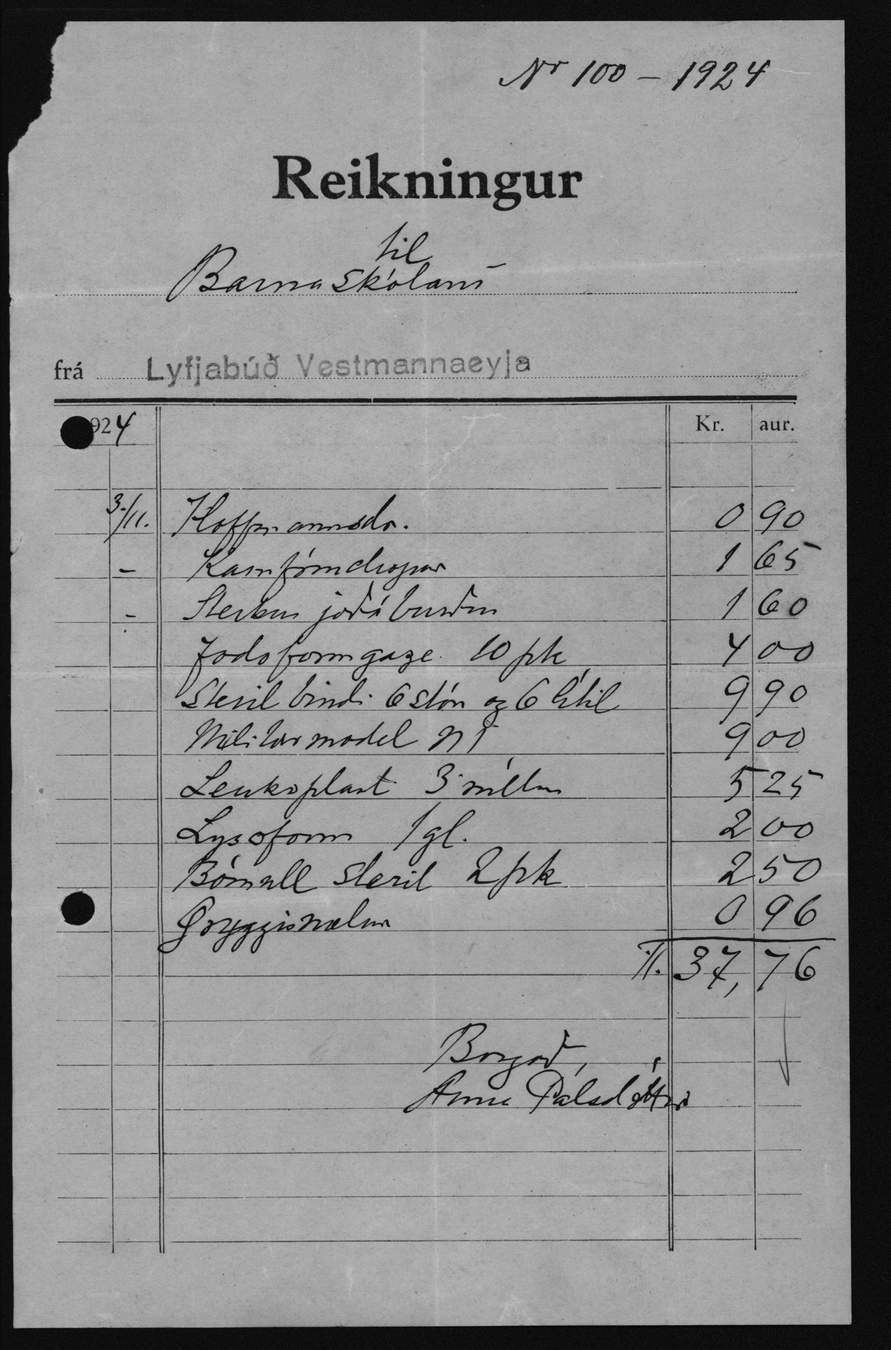 Nr 100 - 1924
Reikningur
til
Barnaskólans
frá Lyfjabúð Vestmannaeyja
1924 Kr. aur.
3/11. Hoffmannsdr. 0 90
- Kamfórudropar 1 65
- Sterkur joðáburður 1 60
Jodoformgaze 10 pk 4 00
Steril bindi 6 stór og 6 lítil 9 90
Militärmodel N 1 9 00
Leukoplast 3 rúllur 5 25
Lysoform 1 gl. 2 00
Bómull steril 2 pk 2 50
Öryggisnælur 0 96
37,76
Borgað,
Anna Pálsdóttir